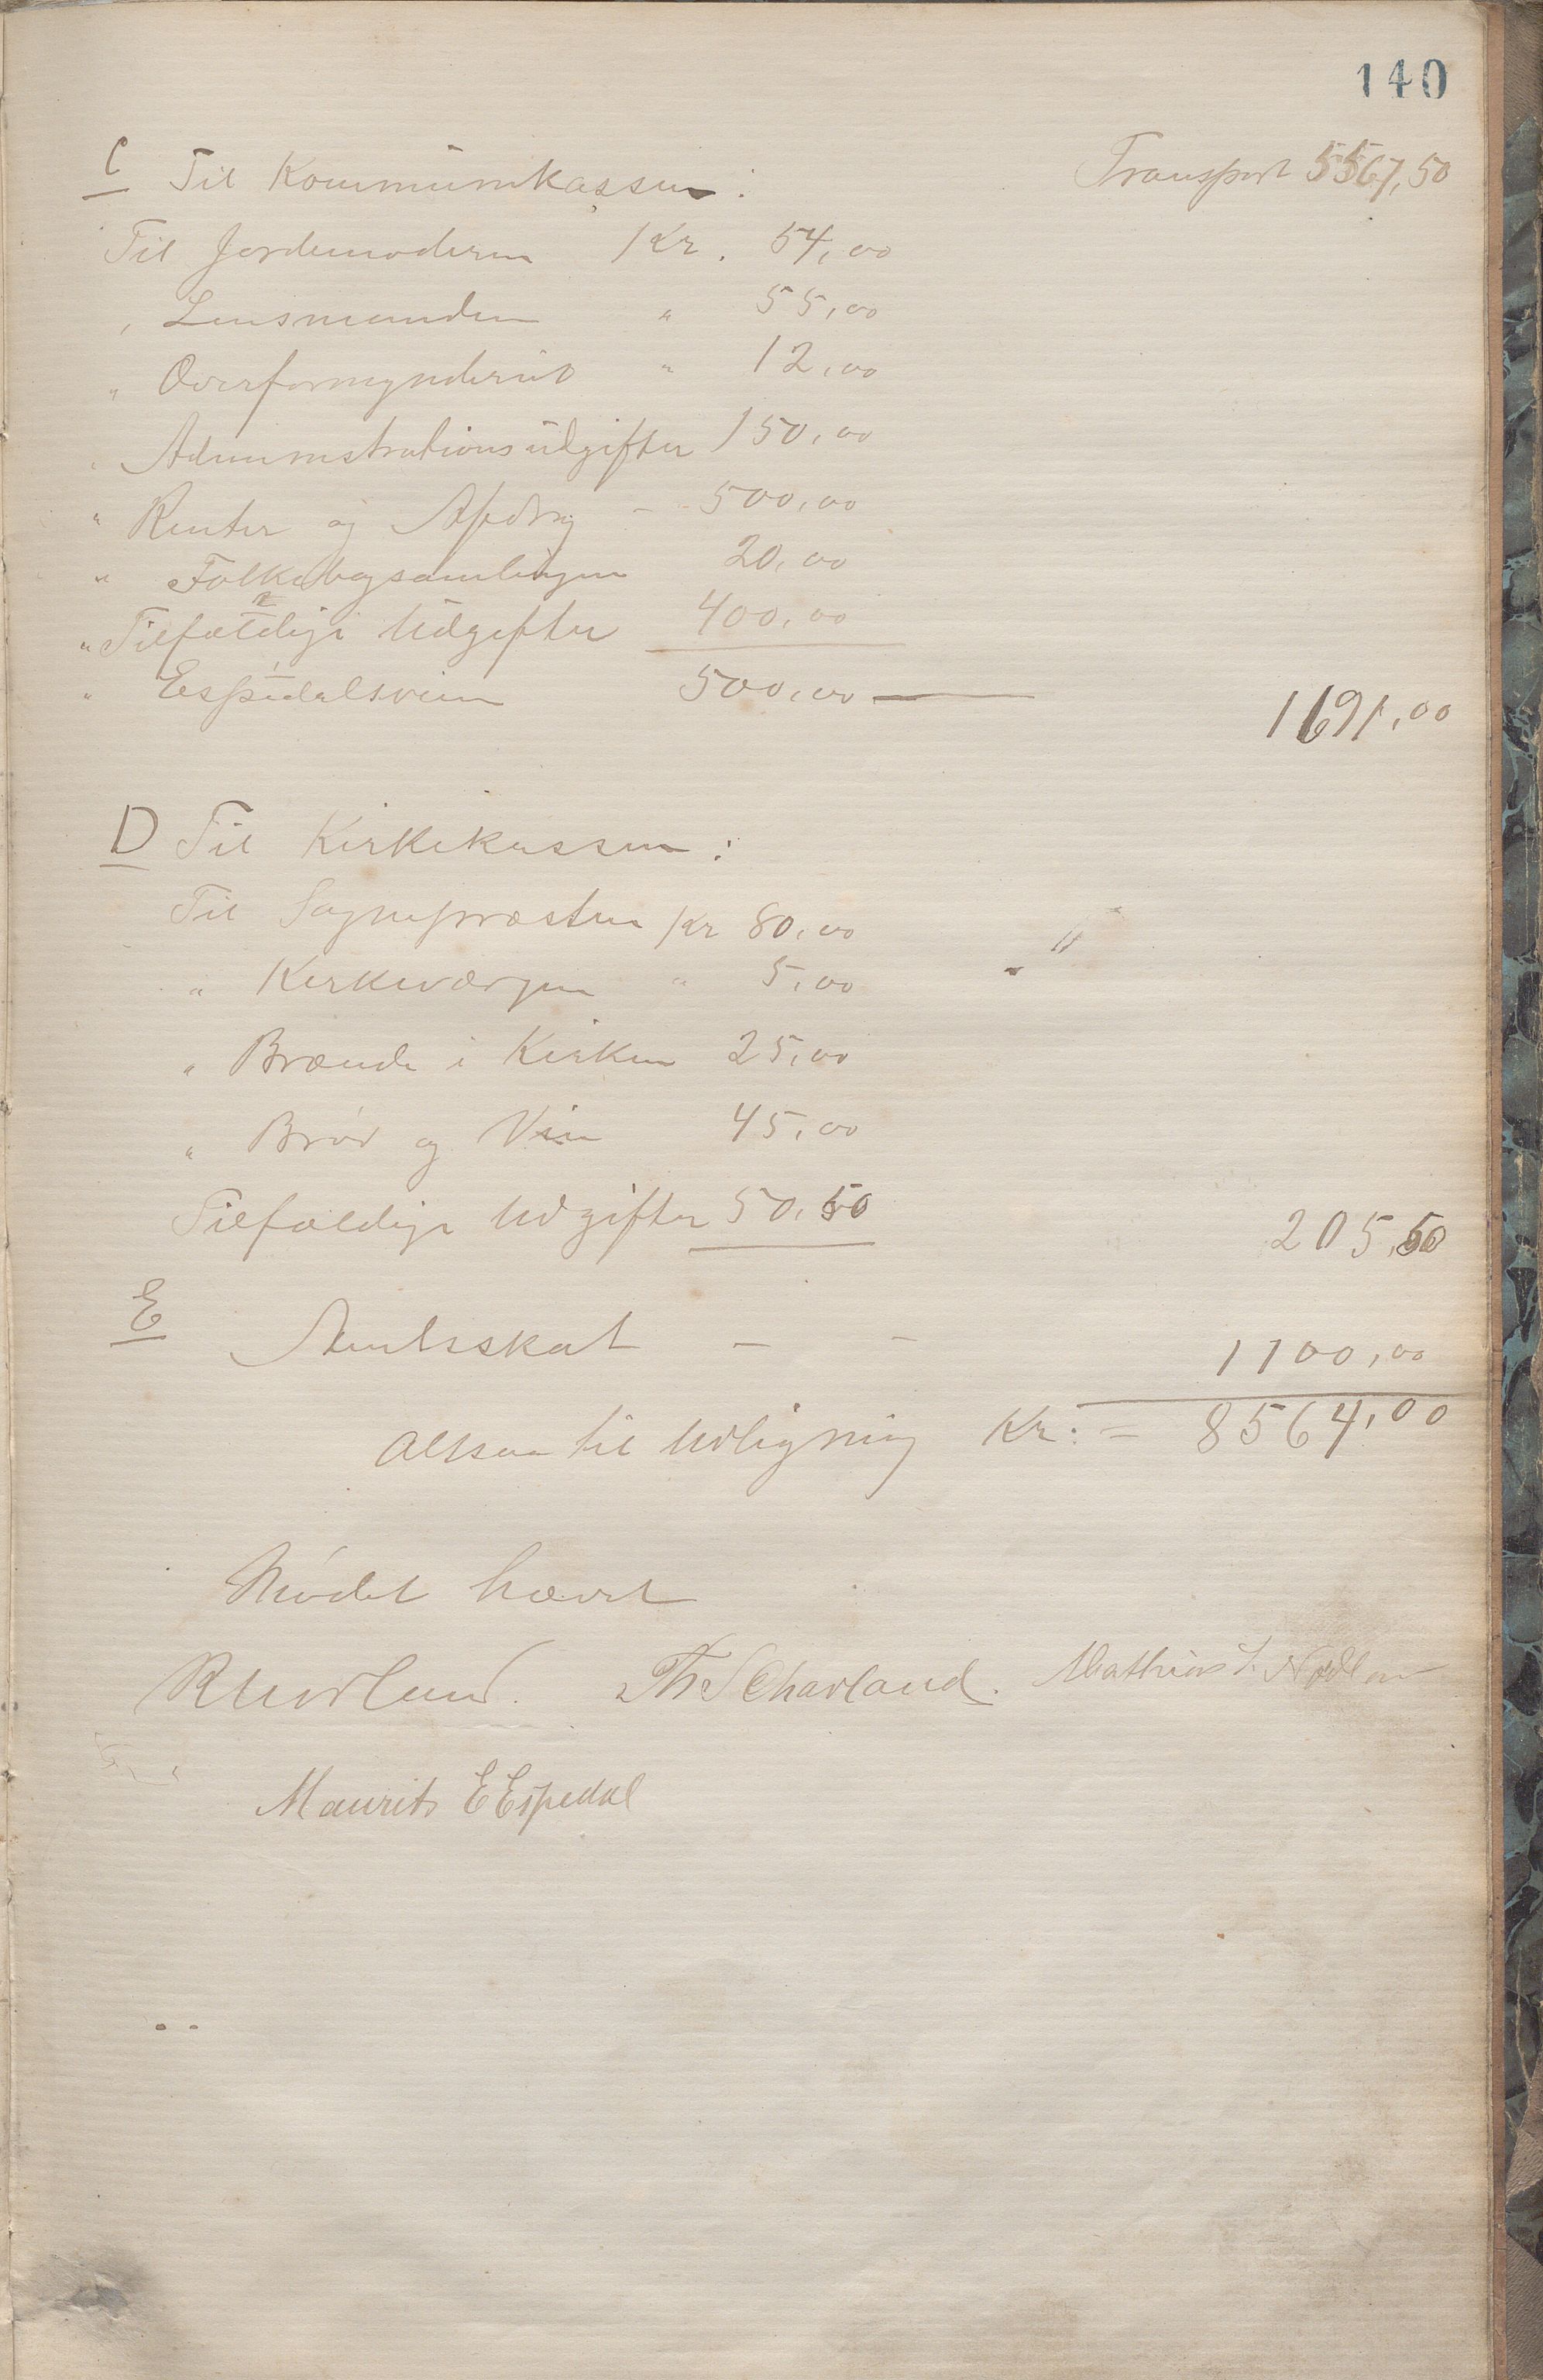 140
C Til Kommunekassen: Transport 5567,50
Til Jordemoderen Kr. 54,00
" Lensmanden " 55,00
" Overformynderiet " 12,00
" Administrationsudgifter 150,00
" Renter og Afdrag - 500,00
" Folkebogsamlingen 20,00
" Tilfældige Udgifter 400,00
" Espedalsveien 500,00 — 1691,00
D Til Kirkekassen:
Til Sognepræsten Kr 80,00 "
" Kirkeværgen " 5,00
" Brænde i Kirken 25,00
" Brød og Vin 45,00
Tilfældige Udgifter 50,50 205,50
E Amtsskat - - 1100,00
Altsaa til Udligning Kr: = 8564,00
Mødet hævet
Th S Østarland. Mathias
Maurits E Espedal